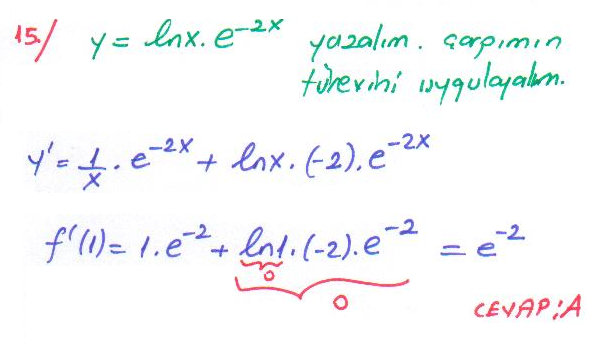 15./ y = lnx. e^-2x yazalım. çarpımın
türevini uygulayalım.
y' = 1/x . e^-2x + lnx. (-2). e^-2x
f'(1) = 1. e^-2 + ln1. (-2). e^-2 = e^-2
0
0
CEVAP: A